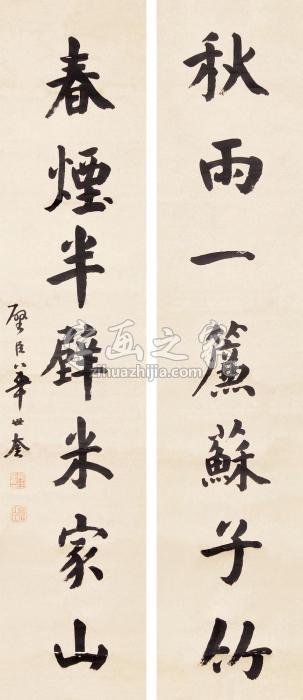 秋雨一簾蘇子竹
春煙半壁米家山
壁臣華世奎
字画之家
zihuazhijia.com